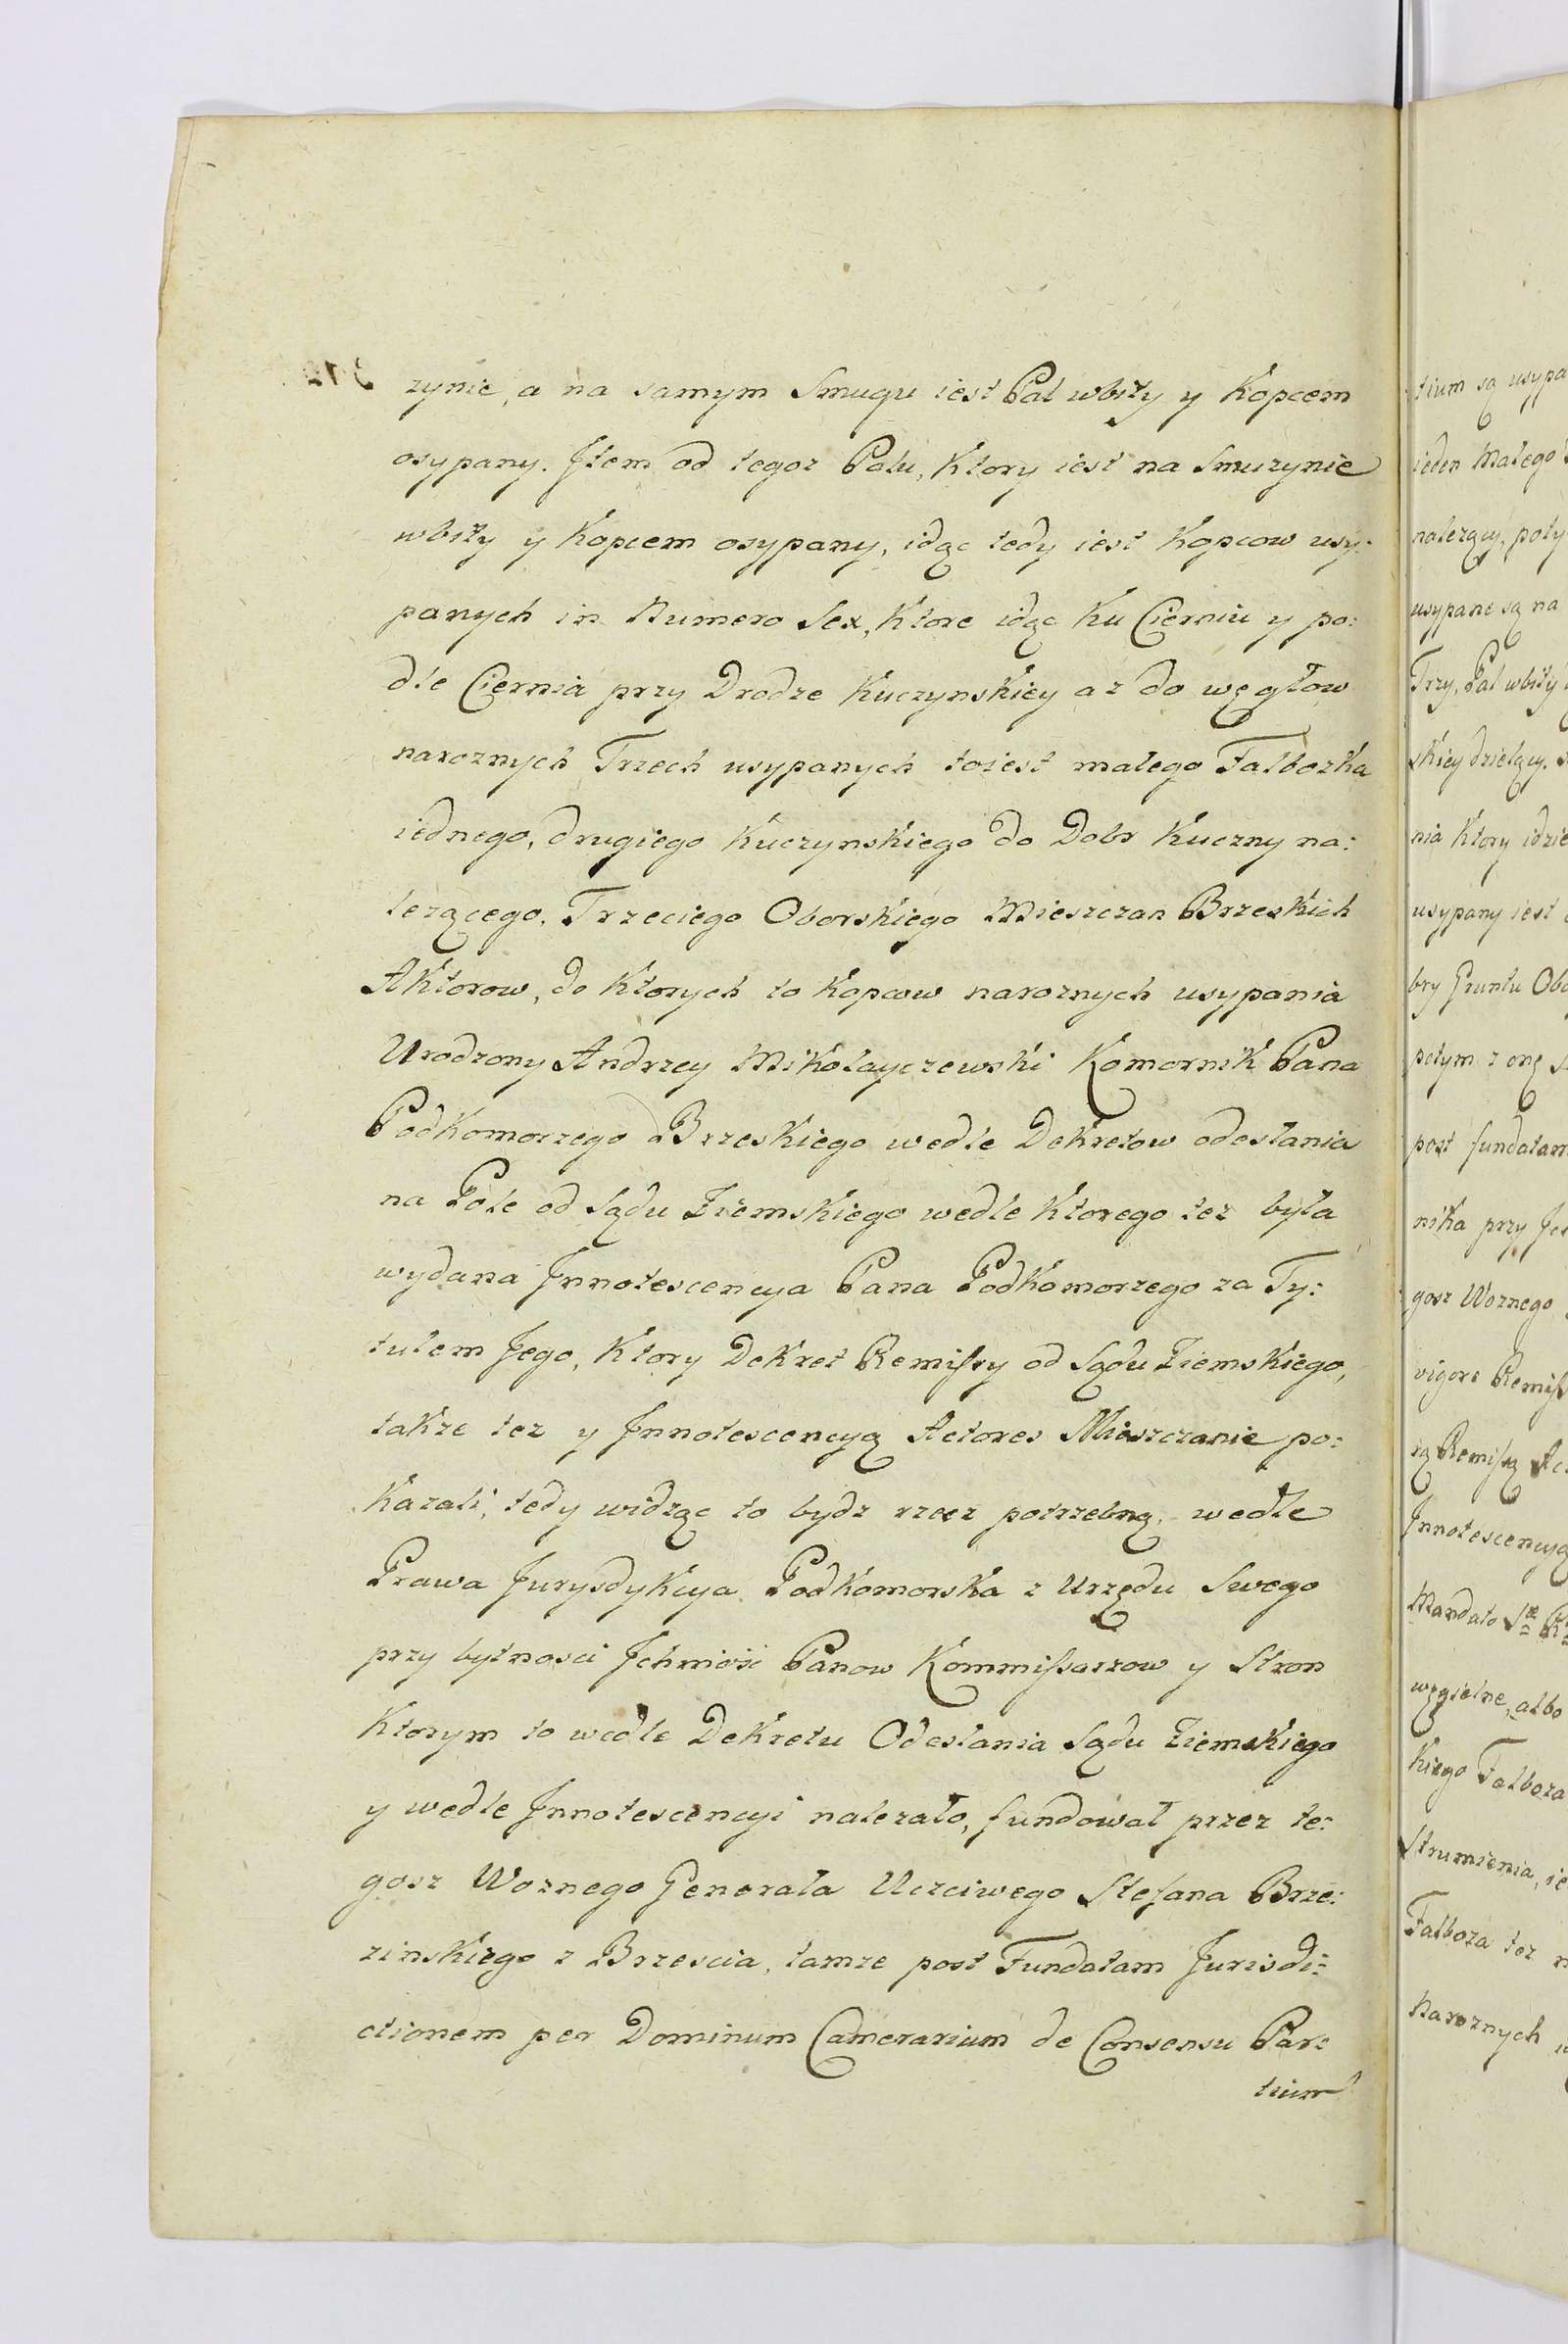 zynie, a na samym Smugu iest Pal wbity y Kopcem
osypany. Jtem od tegoz Palu, Ktory iest na Smuzynie
wbity y Kopcem osypany, idąc tedy iest Kopcow usy:
panych in Numero Sex, Ktore idąc Ku Cierniu y po:
dle Ciernia przy Drodze Kuczynskiey az do węgłow
naroznych Trzech usypanych toiest małego Falbozka
iednego, drugiego Kuczynskiego do Dobr Kuczny na:
lezącego, Trzeciego Oborskiego Mieszczan Brzeskich
Aktorow, do Ktorych to Kopcow naroznych usypania
Urodzony Andrzey Mikołayczewski Komornik Pana
Podkomorzego Brzeskiego wedle Dekretow odesłania
na Pole od Sądu Ziemskiego wedle Ktorego tez była
wydana Jnnotescencya Pana Podkomorzego za Ty:
tulem Jego, Ktory Dekret Remissy od Sądu Ziemskiego,
takze tez y Jnnotescencyą Actores Mieszczanie po:
Kazali, tedy widząc to bydz rzecz potrzebną, wedle
Prawa Jurysdykcya Podkomorska z Urzędu Swego
przy bytnosci Jchmość Panow Kommissarzow y Stron
Ktorym to wedle Dekretu Odesłania Sądu Ziemskiego
y wedle Jnnotescencyi nalezało, fundował przez te:
gosz Woznego Generała Uczciwego Stefana Brze:
zinskiego z Brzescia, tamze post Fundatam Jurisdi:
ctionem per Dominum Camerarium de Consensu Par:
tium
tium są usypa
ieden Małego
nalezący, poty
usypane są na
Trzy, Pal wbity
skiey dzielący.
nia Ktory idzie
usypany iest
bry Gruntu Obo
potym z onę
post fundatam
nika przy Jch
gosz Woznego
vigore Remiss
są Remissą Ac
Jnnotescencyą
Mandato
węgielne, albo
Kiego Falboza
Strumienia, ie
Falboza tez
Naroznych